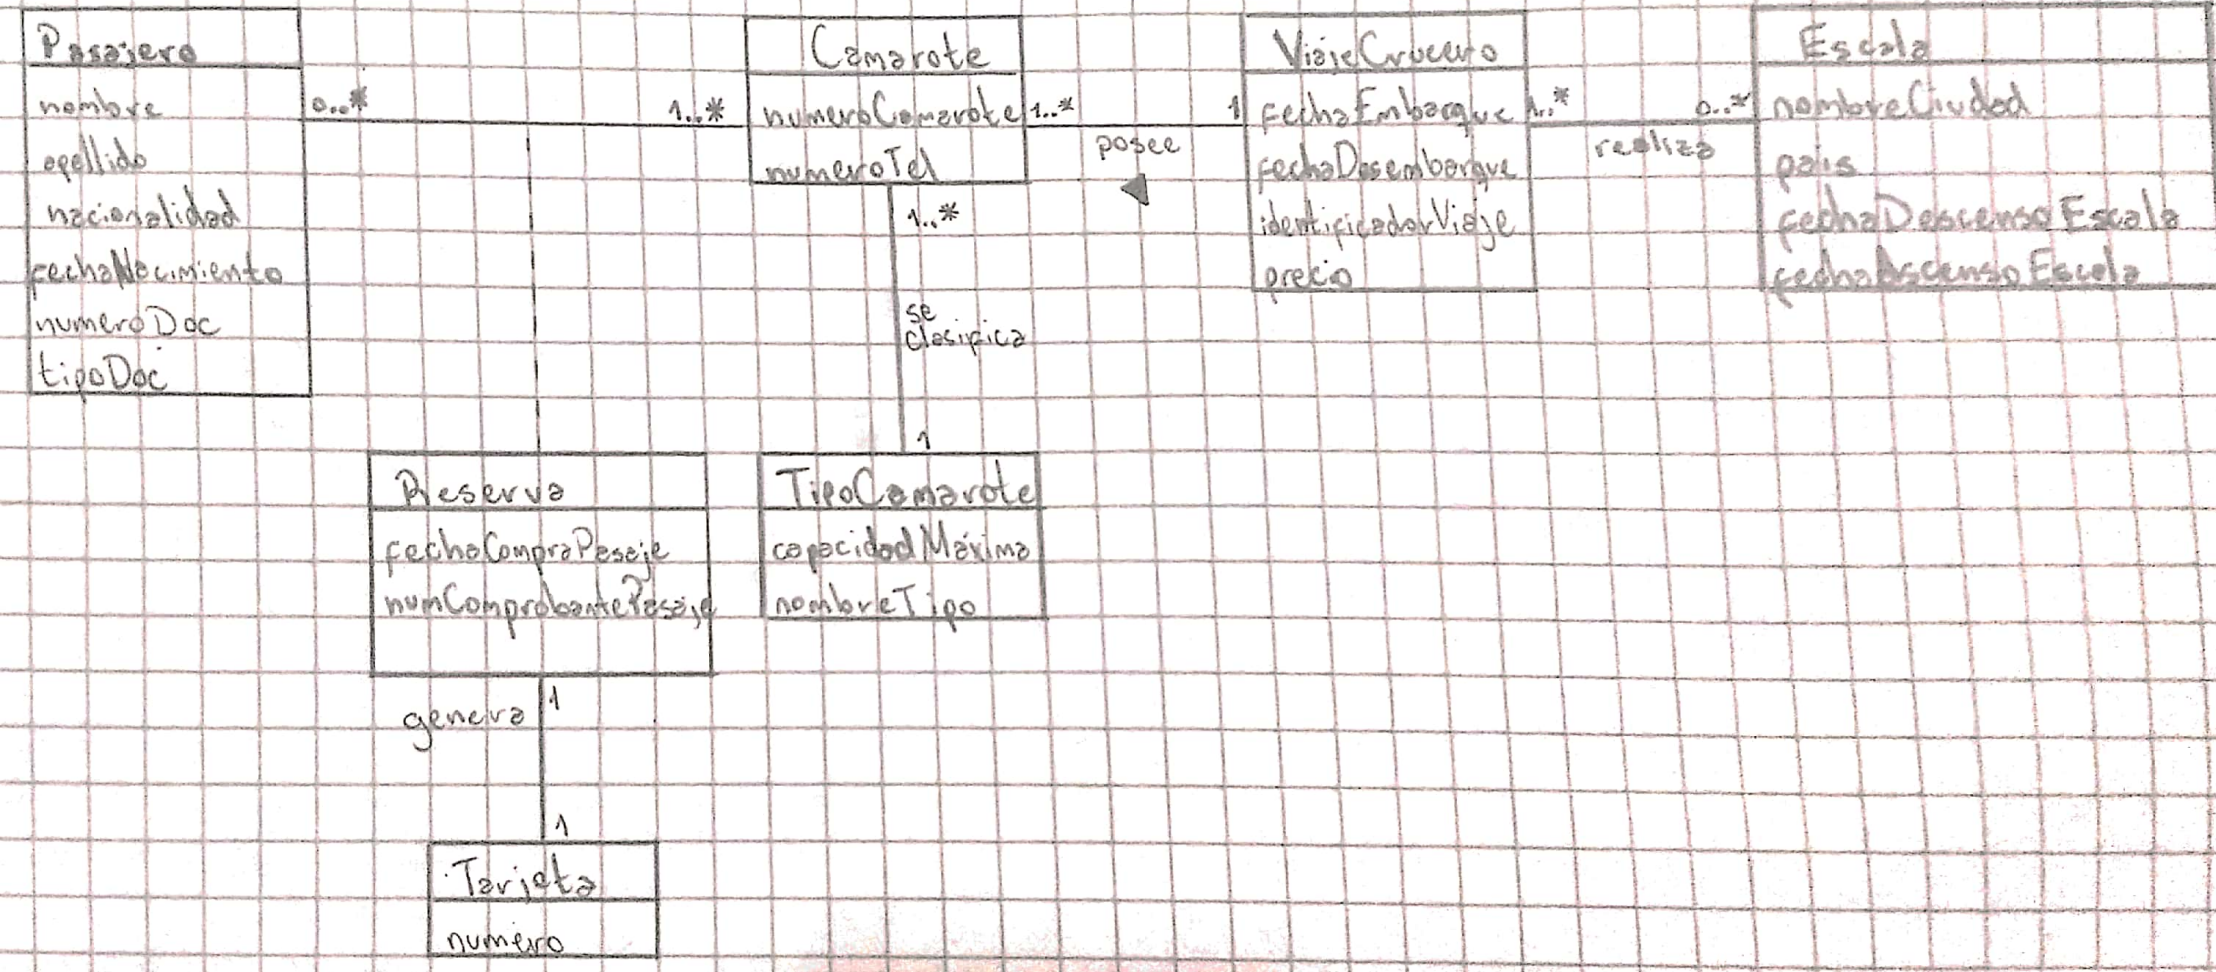 Pasajero
nombre
apellido
nacionalidad
fechaNacimiento
numeroDoc
tipoDoc
0..*
1..*
Camarote
numeroCamarote
numeroTel
1..*
1
posee
ViajeCrucero
fechaEmbarque
fechaDesembarque
identificadorViaje
precio
1..*
0..*
realiza
Escala
nombreCiudad
pais
fechaDescensoEscala
fechaAscensoEscala
1..*
se
clasifica
1
Reserva
fechaCompraPasaje
numComprobantePasaje
TipoCamarote
capacidadMáxima
nombreTipo
1
genera
1
Tarjeta
numero